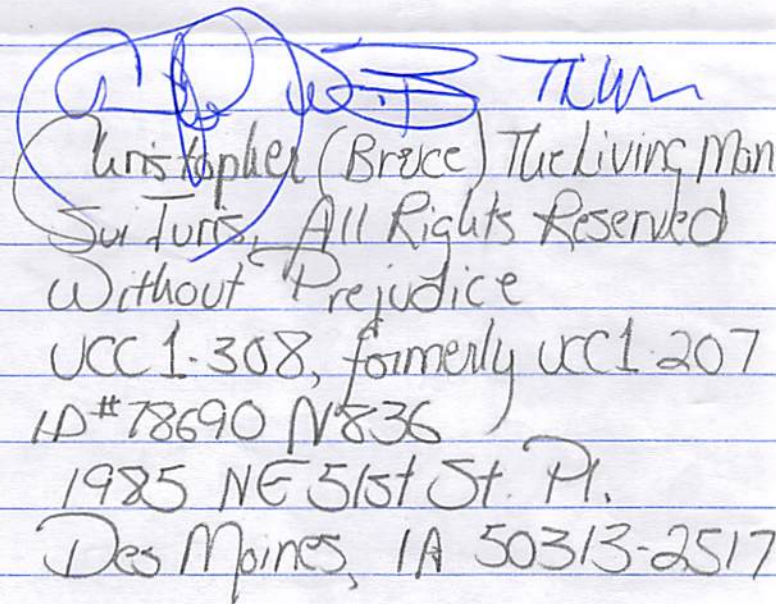 TLM
Christopher (Bruce) The Living Man
Sui Juris, All Rights Reserved
Without Prejudice
UCC 1-308, formerly UCC 1-207
ID #78690 N836
1985 NE 51st St. Pl.
Des Moines, IA 50313-2517